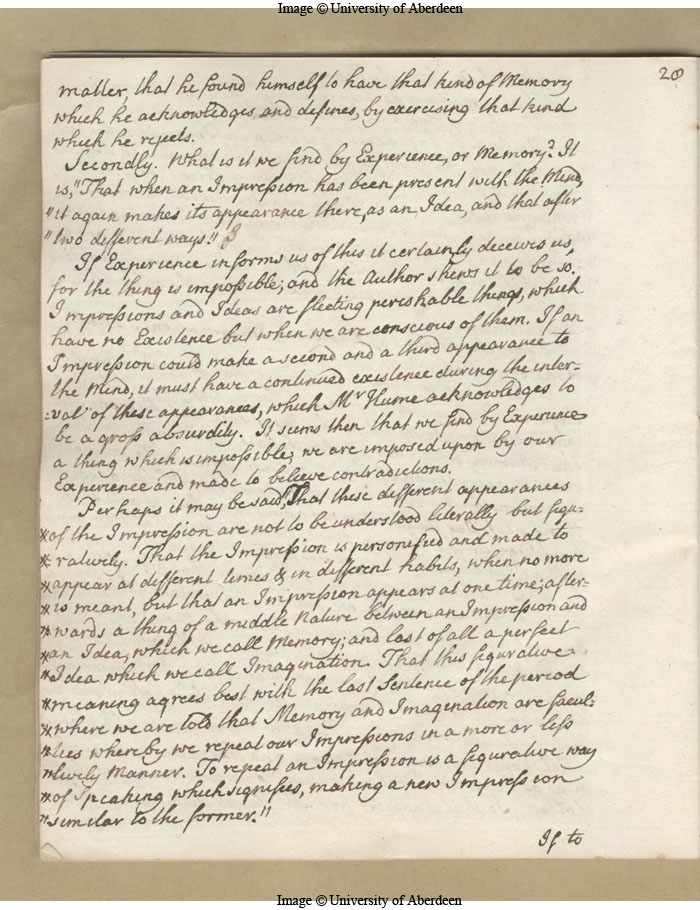 Image © University of Aberdeen
20
matter, that he found himself to have that kind of Memory
which he acknowledges and defines, by exercising that kind
which he rejects.
Secondly. What is it we find by Experience, or Memory? It
is, "That when an Impression has been present with the Mind,
"it again makes its appearance there, as an Idea, and that after
"two different ways."
If Experience informs us of this it certainly deceives us,
for the thing is impossible; and the Author shews it to be so.
Impressions and Ideas are fleeting perishable things, which
have no Existence but when we are conscious of them. If an
Impression could make a second and a third appearance to
the Mind, it must have a continued existence during the inter-
:val of these appearances, which Mr Hume acknowledges to
be a gross absurdity. It seems then that we find by Experience
a thing which is impossible; we are imposed upon by our
Experience and made to believe contradictions.
Perhaps it may be said, That these different appearances
"of the Impression are not to be understood literally but figu:
"ratively. That the Impression is personified and made to
"appear at different times & in different habits, when no more
"is meant, but that an Impression appears at one time; after-
"wards a thing of a middle Nature between an Impression and
"an Idea, which we call Memory; and last of all a perfect
"Idea which we call Imagination. That this figurative
"meaning agrees best with the last Sentence of the period
"where we are told that Memory and Imagination are facul:
"ties whereby we repeat our Impressions in a more or less
"lively Manner. To repeat an Impression is a figurative way
"of Speaking which signifies, making a new Impression
"similar to the former."
If to
Image © University of Aberdeen